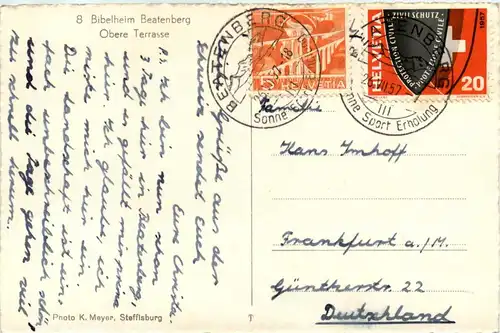 8 Bibelheim Beatenberg
Obere Terrasse
Grüße aus der
sendet Euch
Eure Christa.
P.S. Ich bin nun schon
3 Tag hier in Beatenberg.
Es gefällt mir prima
Ich glaube, ich
mich hier ein
Die Landschaft ist ein-
fach unbeschreiblich schön
und die Tage gehen viel
zu schnell herum.
Photo K. Meyer, Steffisburg
T
BEATENBERG
Sonne
5
HELVETIA
ZIVILSCHUTZ
PROTECTION CIVILE
1957
20
III
Sonne Sport Erholung
Familie
Hans Imhoff
Frankfurt a./M.
Günthersstr. 22
Deutschland